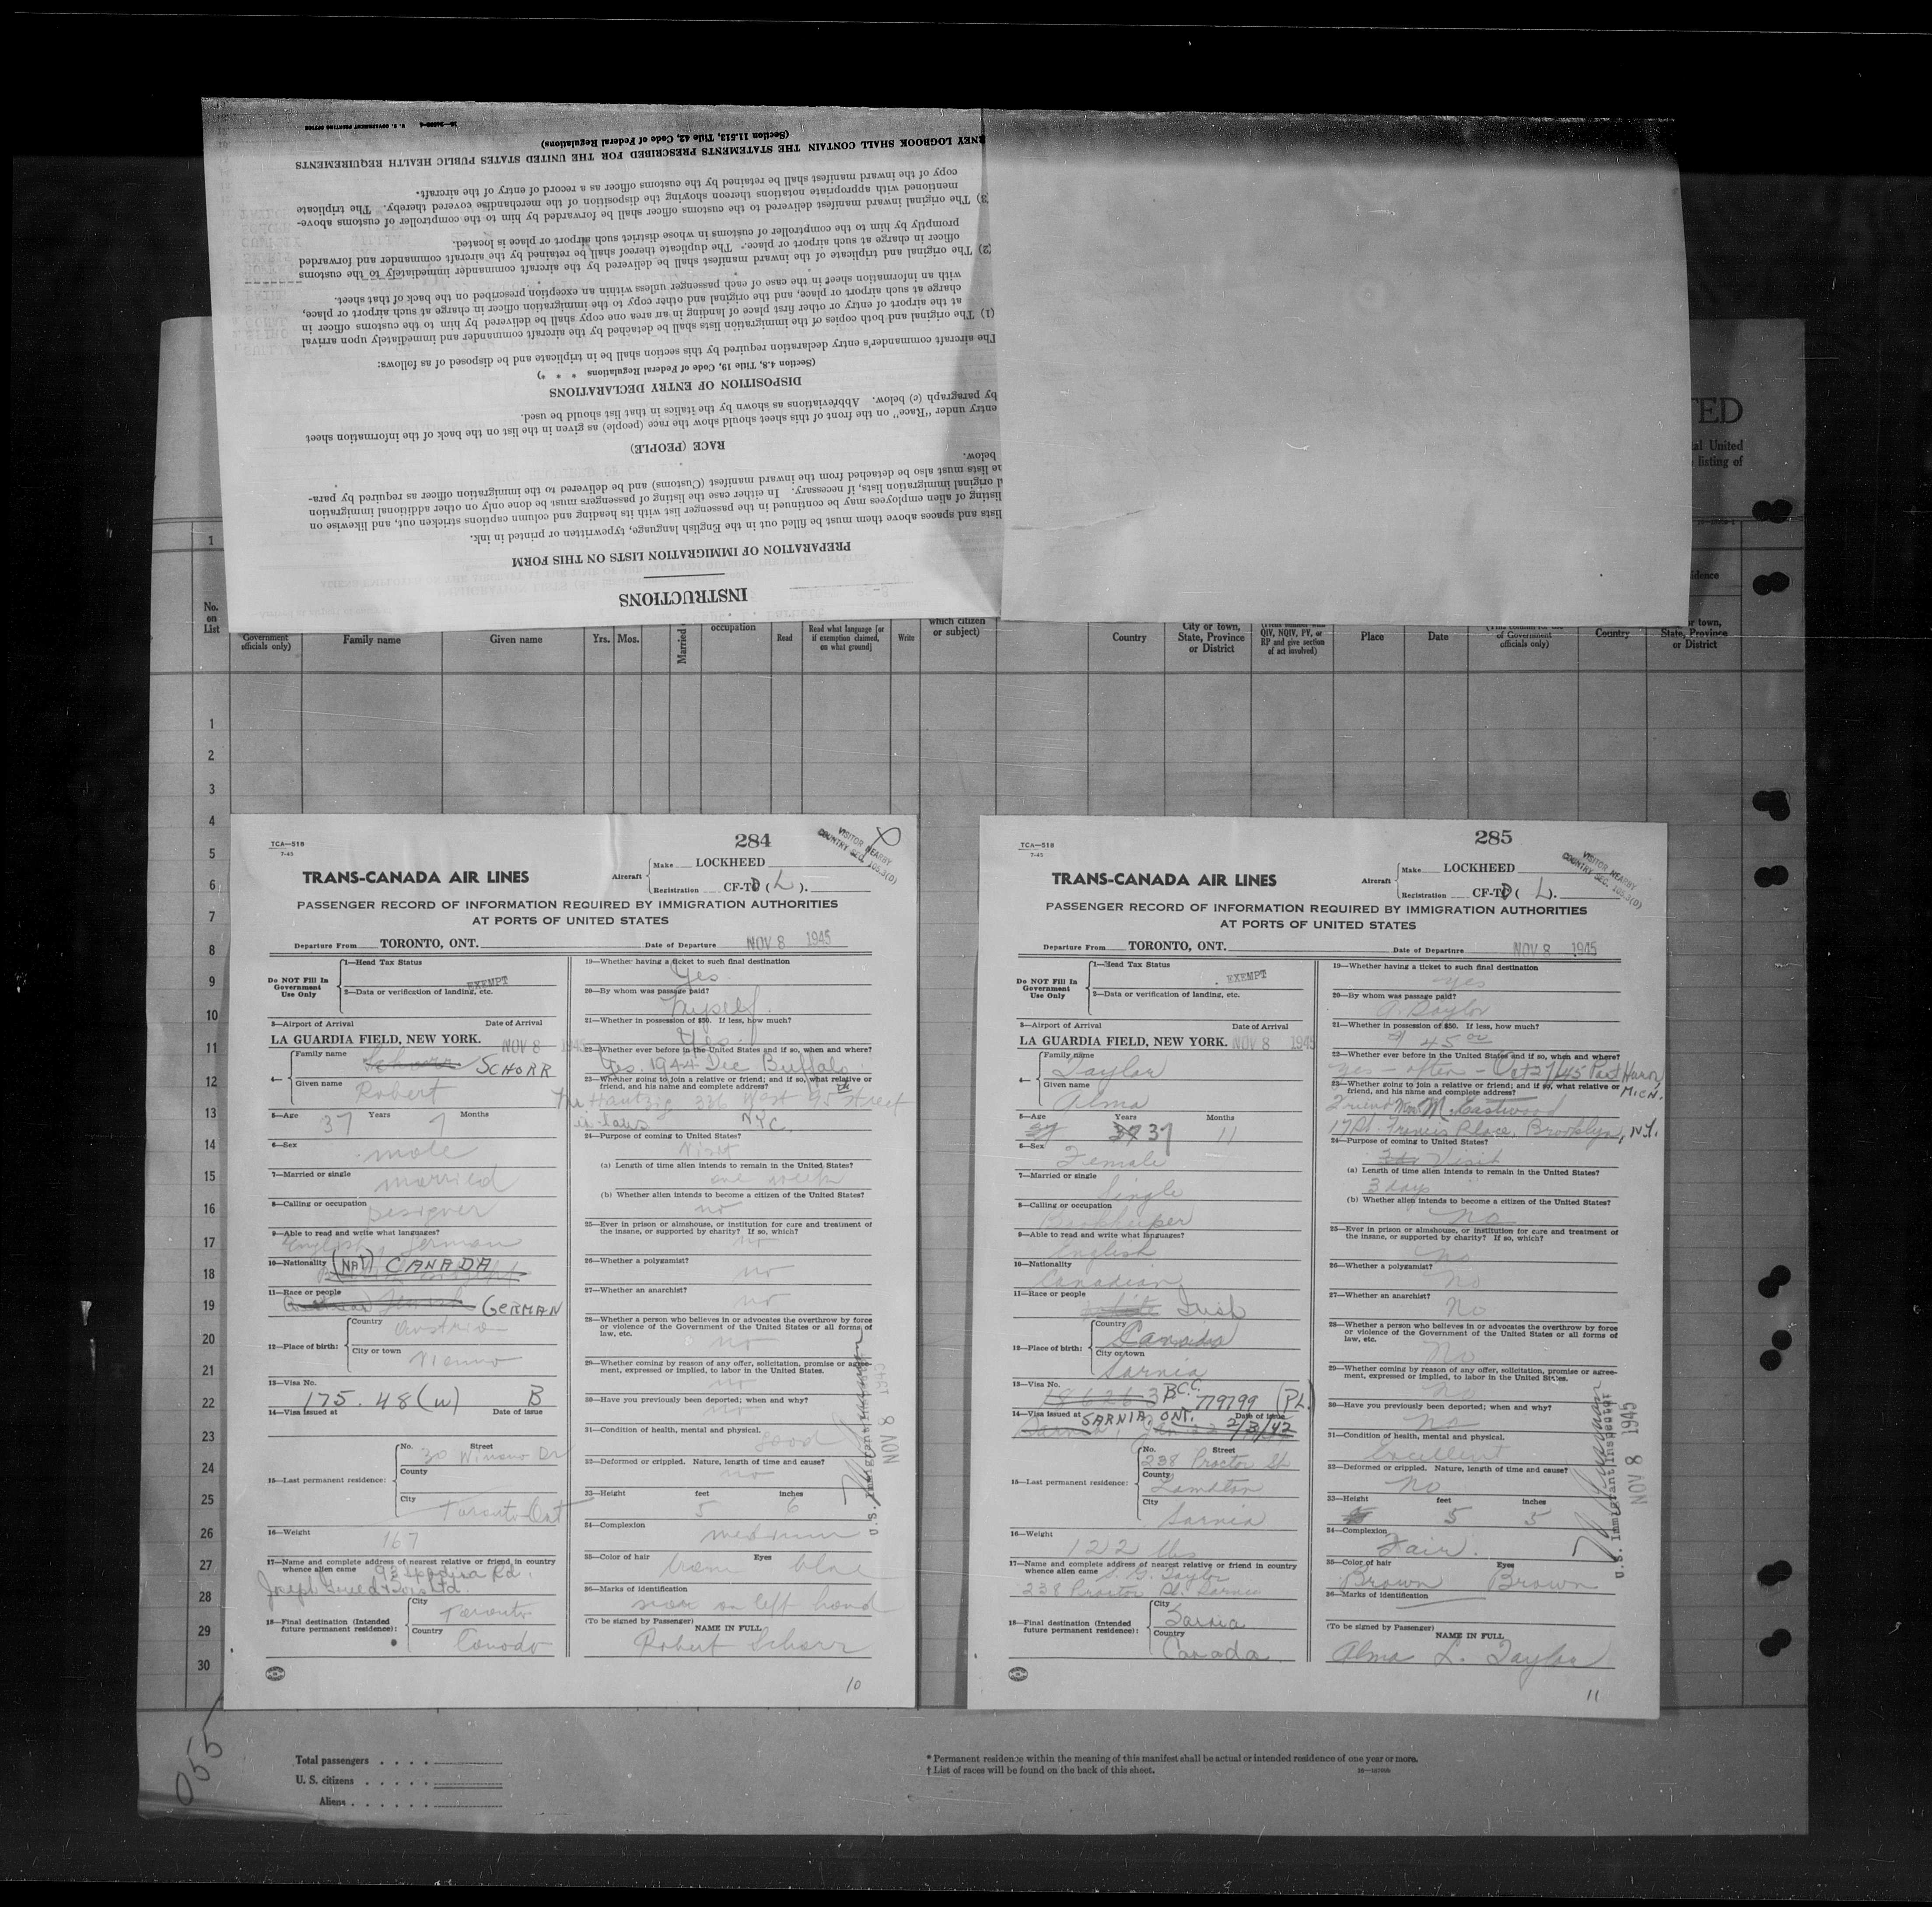 16—24398-4 U. S. GOVERNMENT PRINTING OFFICE
(Section 11.513, Title 42, Code of Federal Regulations)
RNEY LOGBOOK SHALL CONTAIN THE STATEMENTS PRESCRIBED FOR THE UNITED STATES PUBLIC HEALTH REQUIREMENTS
copy of the inward manifest shall be retained by the customs officer as a record of entry of the aircraft.
mentioned with appropriate notations thereon showing the disposition of the merchandise covered thereby. The triplicate
3) The original inward manifest delivered to the customs officer shall be forwarded by him to the comptroller of customs above-
promptly by him to the comptroller of customs in whose district such airport or place is located.
officer in charge at such airport or place. The duplicate thereof shall be retained by the aircraft commander and forwarded
(2) The original and triplicate of the inward manifest shall be delivered by the aircraft commander immediately to the customs
with an information sheet in the case of each passenger unless within an exception prescribed on the back of that sheet.
charge at such airport or place, and the original and other copy to the immigration officer in charge at such airport or place,
at the airport of entry or other first place of landing in an area one copy shall be delivered by him to the customs officer in
(1) The original and both copies of the immigration lists shall be detached by the aircraft commander and immediately upon arrival
The aircraft commander's entry declaration required by this section shall be in triplicate and be disposed of as follows:
(Section 4.8, Title 19, Code of Federal Regulations * * *)
DISPOSITION OF ENTRY DECLARATIONS
by paragraph (c) below. Abbreviations as shown by the italics in that list should be used.
entry under "Race" on the front of this sheet should show the race (people) as given in the list on the back of the information sheet
RACE (PEOPLE)
below.
lists must also be detached from the inward manifest (Customs) and be delivered to the immigration officer as required by para-
original immigration lists, if necessary. In either case the listing of passengers must be done only on other additional immigration
listing of alien employees may be continued in the passenger list with its heading and column captions stricken out, and likewise on
lists and spaces above them must be filled out in the English language, typewritten or printed in ink.
PREPARATION OF IMMIGRATION LISTS ON THIS FORM
INSTRUCTIONS
TED
al United
listing of
1
No. on List
Government officials only)
Family name
Given name
Yrs.
Mos.
Married
occupation
Read
Read what language [or if exemption claimed, on what ground]
Write
which citizen or subject)
Country
City or town, State, Province or District
QIV, NQIV, PV, or RP and give section of act involved)
Place
Date
of Government officials only)
Country
or town, State, Province or District
1
2
3
4
5
6
7
8
9
10
11
12
13
14
15
16
17
18
19
20
21
22
23
24
25
26
27
28
29
30
TCA—518
7-45
284
VISITOR NEARBY
COUNTRY SEC. 105.3(D)
TRANS-CANADA AIR LINES
Aircraft
Make LOCKHEED
Registration CF-T (L).
PASSENGER RECORD OF INFORMATION REQUIRED BY IMMIGRATION AUTHORITIES
AT PORTS OF UNITED STATES
Departure From TORONTO, ONT. Date of Departure NOV 8 1945
Do NOT Fill In Government Use Only
1—Head Tax Status
EXEMPT
2—Data or verification of landing, etc.
3—Airport of Arrival Date of Arrival
LA GUARDIA FIELD, NEW YORK. NOV 8 1945
4— Family name Schorr SCHORR
Given name Robert
5—Age 37 Years 7 Months
6—Sex male
7—Married or single married
8—Calling or occupation Designer
9—Able to read and write what languages? English German
10—Nationality (NAT) CANADA
11—Race or people GERMAN
12—Place of birth: Country Austria
City or town Vienna
13—Visa No. 175.48(w) B
14—Visa issued at Date of issue
15—Last permanent residence: No. Street 30 Winona Dr
County
City Toronto Ont
16—Weight 167
17—Name and complete address of nearest relative or friend in country whence alien came 93 Spadina Rd.
18—Final destination (Intended future permanent residence): City Toronto
Country Canada
19—Whether having a ticket to such final destination
Yes
20—By whom was passage paid?
Myself
21—Whether in possession of $50. If less, how much?
Yes
22—Whether ever before in the United States and if so, when and where?
Yes. 1944 Dec Buffalo
23—Whether going to join a relative or friend; and if so, what relative or friend, and his name and complete address?
Hautzig 336 West 95 Street
in-laws NYC.
24—Purpose of coming to United States?
Visit
(a) Length of time alien intends to remain in the United States?
one week
(b) Whether alien intends to become a citizen of the United States?
no
25—Ever in prison or almshouse, or institution for care and treatment of the insane, or supported by charity? If so, which?
no
26—Whether a polygamist?
no
27—Whether an anarchist?
no
28—Whether a person who believes in or advocates the overthrow by force or violence of the Government of the United States or all forms of law, etc.
no
29—Whether coming by reason of any offer, solicitation, promise or agreement, expressed or implied, to labor in the United States.
no
30—Have you previously been deported; when and why?
no
31—Condition of health, mental and physical.
good
32—Deformed or crippled. Nature, length of time and cause?
no
33—Height 5 feet 6 inches
34—Complexion medium
35—Color of hair brown Eyes blue
36—Marks of identification
scar on left hand
(To be signed by Passenger) NAME IN FULL
Robert Schorr
U.S. Immigrant Inspector
NOV 8 1945
10
TCA—518
7-45
285
VISITOR NEARBY
COUNTRY SEC. 105.3(D)
TRANS-CANADA AIR LINES
Aircraft
Make LOCKHEED
Registration CF-T (L).
PASSENGER RECORD OF INFORMATION REQUIRED BY IMMIGRATION AUTHORITIES
AT PORTS OF UNITED STATES
Departure From TORONTO, ONT. Date of Departure NOV 8 1945
Do NOT Fill In Government Use Only
1—Head Tax Status
EXEMPT
2—Data or verification of landing, etc.
3—Airport of Arrival Date of Arrival
LA GUARDIA FIELD, NEW YORK. NOV 8 1945
4— Family name Taylor
Given name Alma
5—Age 37 Years 11 Months
6—Sex Female
7—Married or single Single
8—Calling or occupation Bookkeeper
9—Able to read and write what languages? English
10—Nationality Canadian
11—Race or people white Irish
12—Place of birth: Country Canada
City or town Sarnia
13—Visa No. B.C.C. 779799 (PL)
14—Visa issued at SARNIA, ONT. Date of issue 2/3/42
15—Last permanent residence: No. Street 238 Proctor St
County Lambton
City Sarnia
16—Weight 122 lbs
17—Name and complete address of nearest relative or friend in country whence alien came Taylor
238 Proctor St. Sarnia
18—Final destination (Intended future permanent residence): City Sarnia
Country Canada
19—Whether having a ticket to such final destination
yes
20—By whom was passage paid?
A. Taylor
21—Whether in possession of $50. If less, how much?
45 00
22—Whether ever before in the United States and if so, when and where?
yes - often - Oct 27/45 Port Huron, MICH.
23—Whether going to join a relative or friend; and if so, what relative or friend, and his name and complete address?
Friend Mrs. M. Eastwood
17 St. Francis Place, Brooklyn, N.Y.
24—Purpose of coming to United States?
Visit
(a) Length of time alien intends to remain in the United States?
3 days
(b) Whether alien intends to become a citizen of the United States?
No
25—Ever in prison or almshouse, or institution for care and treatment of the insane, or supported by charity? If so, which?
No
26—Whether a polygamist?
No
27—Whether an anarchist?
No
28—Whether a person who believes in or advocates the overthrow by force or violence of the Government of the United States or all forms of law, etc.
No
29—Whether coming by reason of any offer, solicitation, promise or agreement, expressed or implied, to labor in the United States.
No
30—Have you previously been deported; when and why?
No
31—Condition of health, mental and physical.
Excellent
32—Deformed or crippled. Nature, length of time and cause?
No
33—Height 5 feet 5 inches
34—Complexion Fair.
35—Color of hair Brown Eyes Brown
36—Marks of identification
(To be signed by Passenger) NAME IN FULL
Alma L. Taylor
U.S. Immigrant Inspector
NOV 8 1945
11
055
Total passengers
U. S. citizens
Aliens
* Permanent residence within the meaning of this manifest shall be actual or intended residence of one year or more.
† List of races will be found on the back of this sheet.